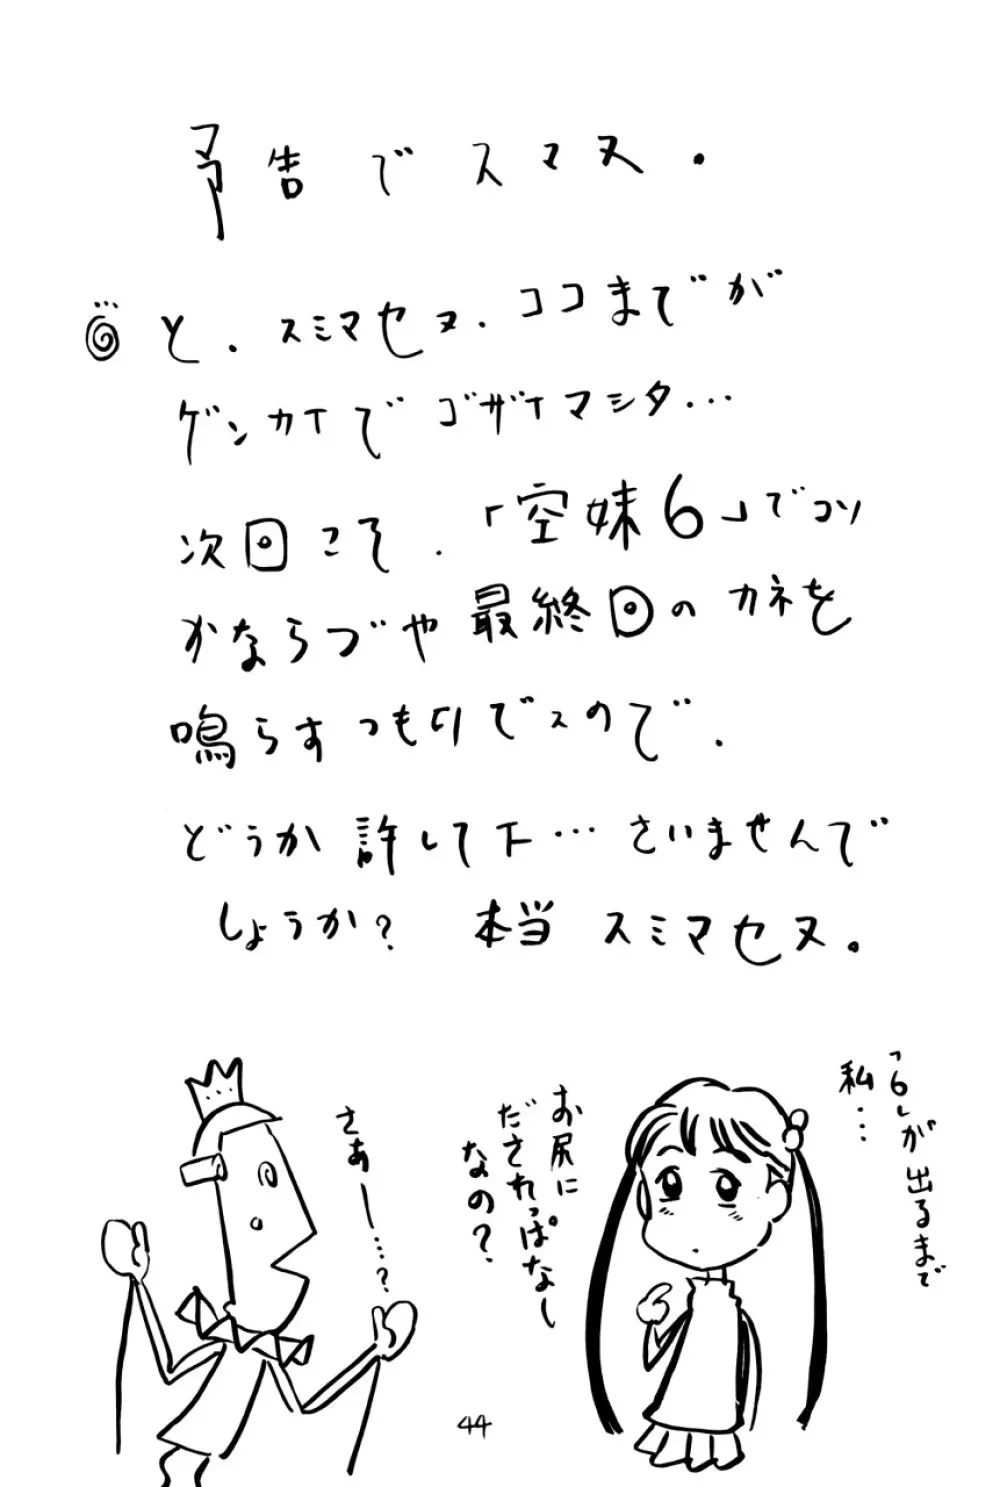 予告でスマヌ.
と.スミマセヌ.ココまでが
ゲンカイでゴザイマシタ...
次回こそ.「空妹6」でコソ
かならづや最終回のカネを
鳴らすつもりでスので.
どうか許して下...さいませんで
しょうか? 本当スミマセヌ。
さあー...?
44